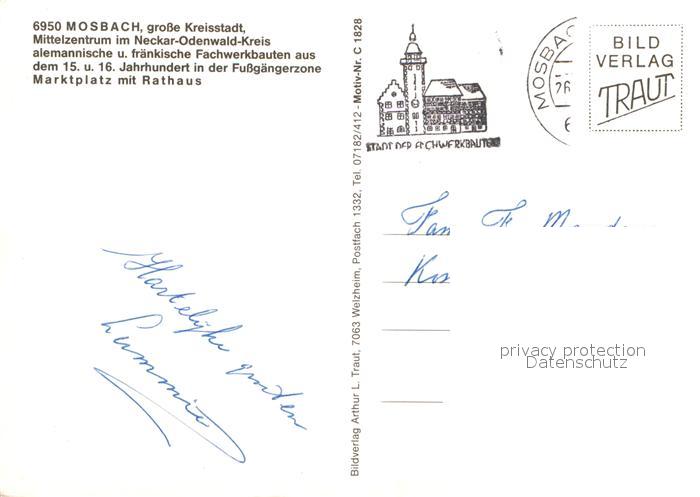 6950 MOSBACH, große Kreisstadt,
Mittelzentrum im Neckar-Odenwald-Kreis
alemannische u. fränkische Fachwerkbauten aus
dem 15. u. 16. Jahrhundert in der Fußgängerzone
Marktplatz mit Rathaus
Hartelijke groeten
Lummie
Bildverlag Arthur L. Traut, 7063 Welzheim, Postfach 1332, Tel. 07182/412 - Motiv-Nr. C 1828
STADT DER FACHWERKBAUTEN
MOSBAC
26
6
BILD
VERLAG
TRAUT
Fam
privacy protection
Datenschutz